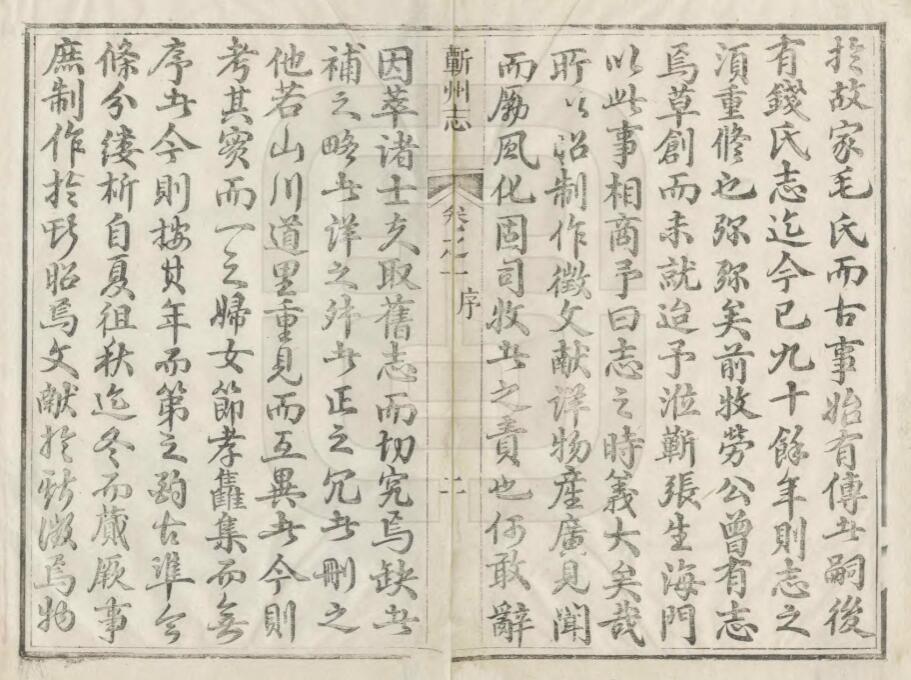 於故家毛氏而古事始有傳者嗣後
有錢氏志迄今已九十餘年則志之
須重修也弥弥矣前牧勞公曾有志
焉草創而未就迨予涖蘄張生海門
以此事相商予曰志之時義大矣哉
所以昭制作徵文献詳物產廣見聞
而勵風化固司牧者之責也何敢辭
蘄州志
卷之一
序
二
因萃諸士夫取舊志而切究焉缺者
補之略者詳之舛者正之冗者刪之
他若山川道里重見而互異者今則
考其實而一之婦女節孝雜集而無
序者今則按其年而第之酌古準今
條分缕析自夏徂秋迄冬而蕆厥事
庶制作於斯昭焉文献於斯徵焉物